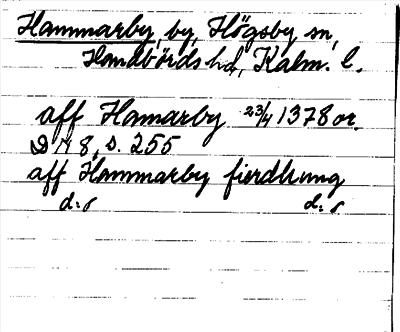 Hammarby, by, Högsby sn,
Handbörds hd, Kalm. l.
aff Hamarby 23/4 1378 or.
DN 8, s. 255
aff Hammarby fierdhung
d:o d:o